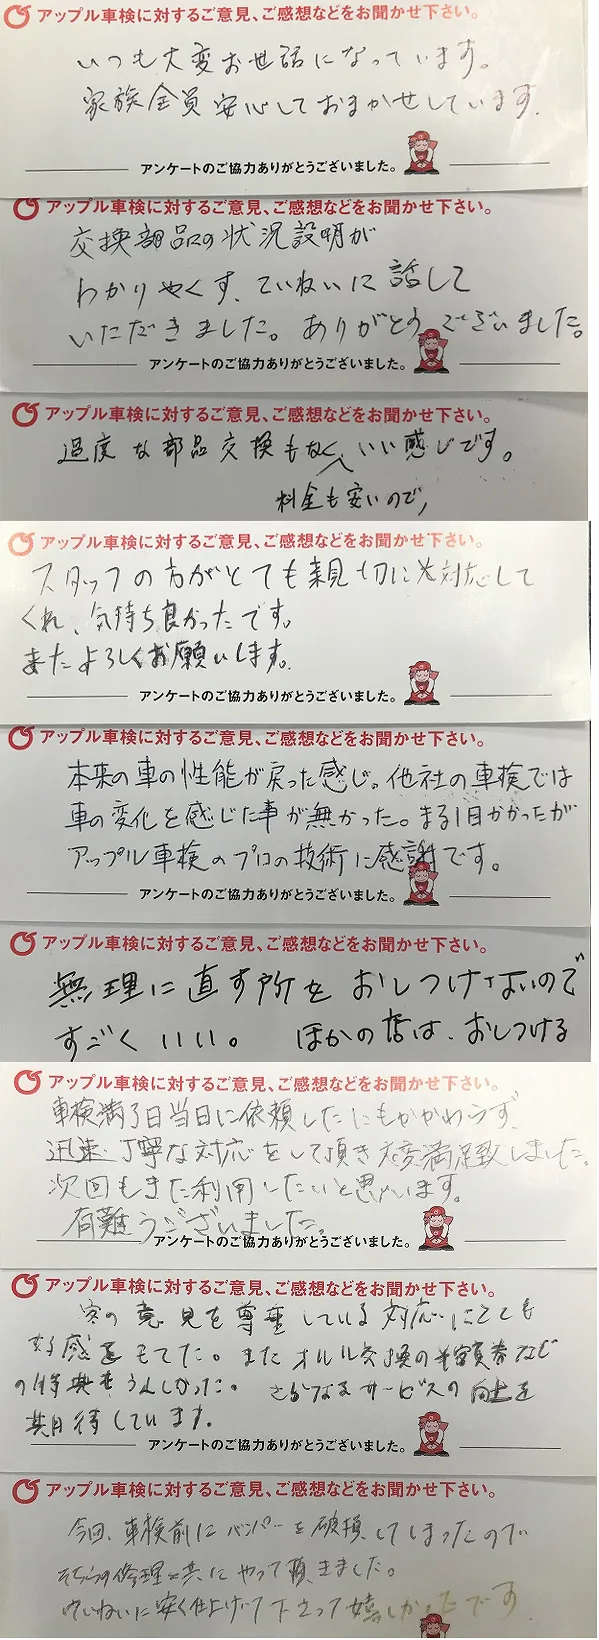 アップル車検に対するご意見、ご感想などをお聞かせ下さい。
いつも大変お世話になっています。
家族全員安心しておまかせしています。
アンケートのご協力ありがとうございました。
アップル車検に対するご意見、ご感想などをお聞かせ下さい。
交換部品の状況説明が
わかりやくす、ていねいに話して
いただきました。ありがとうございました。
アンケートのご協力ありがとうございました。
アップル車検に対するご意見、ご感想などをお聞かせ下さい。
過度な部品交換もなくいい感じです。
料金も安いので,
アップル車検に対するご意見、ご感想などをお聞かせ下さい。
スタッフの方がとても親切に対応して
くれ、気持ち良かったです。
またよろしくお願いします。
アンケートのご協力ありがとうございました。
アップル車検に対するご意見、ご感想などをお聞かせ下さい。
本来の車の性能が戻った感じ。他社の車検では
車の変化を感じた事が無かった。まる1日かかったが
アップル車検のプロの技術に感謝です。
アンケートのご協力ありがとうございました。
アップル車検に対するご意見、ご感想などをお聞かせ下さい。
無理に直す所をおしつけないので
すごくいい。 ほかの店は、おしつける
アップル車検に対するご意見、ご感想などをお聞かせ下さい。
車検満了日当日に依頼したにもかかわらず、
迅速・丁寧な対応をして頂き大変満足致しました。
次回もまた利用したいと思います。
有難うございました。
アンケートのご協力ありがとうございました。
アップル車検に対するご意見、ご感想などをお聞かせ下さい。
客の意見を尊重している対応にとても
好感をもてた。またオイル交換の半額券など
の特典もうれしかった。さらなるサービスの向上を
期待しています。
アンケートのご協力ありがとうございました。
アップル車検に対するご意見、ご感想などをお聞かせ下さい。
今回、車検前にバンパーを破損してしまったので
そちらの修理と共にやって頂きました。
ていねいに安く仕上げて下さって嬉しかったです